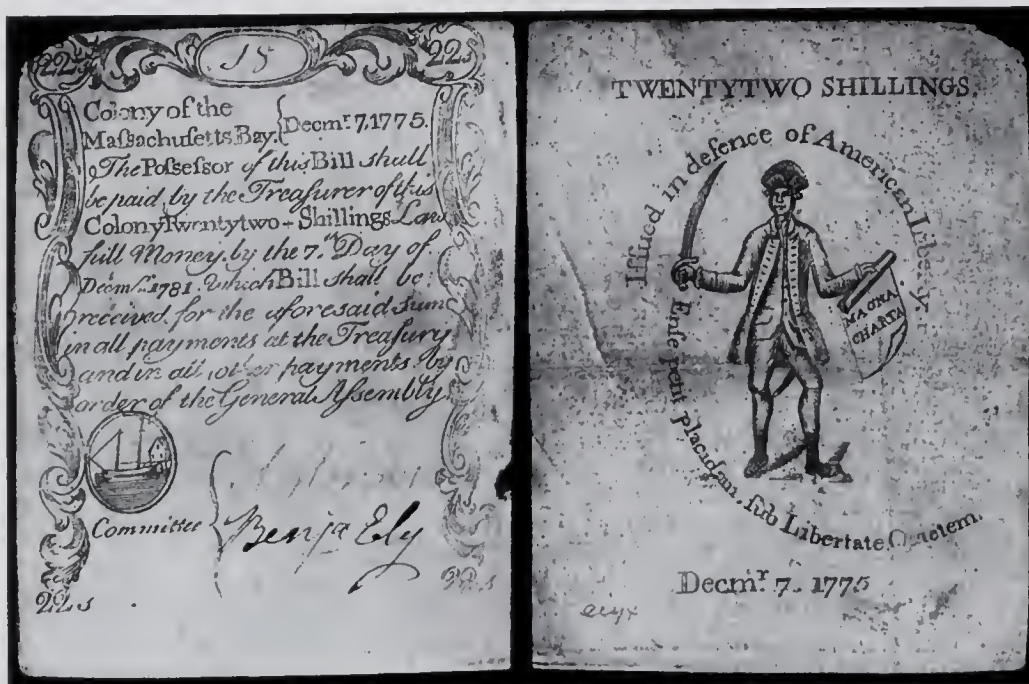 15
22s 22s
Colony of the
Maſsachuſetts Bay. Decmr. 7, 1775.
The Poſseſsor of this Bill shall
be paid by the Treaſurer of this
Colony Twentytwo Shillings Law
full Money by the 7th Day of
Decmr. 1781 which Bill shall be
received for the aforesaid sum
in all payments at the Treaſury
and in all other payments by
order of the General Aſsembly
Committee
Benja Ely
22s 22s
TWENTYTWO SHILLINGS.
Iſsued in defence of American Liberty
MAGNA
CHARTA
Enſe petit placidam, ſub Libertate, Quietem.
Decmr. 7. 1775